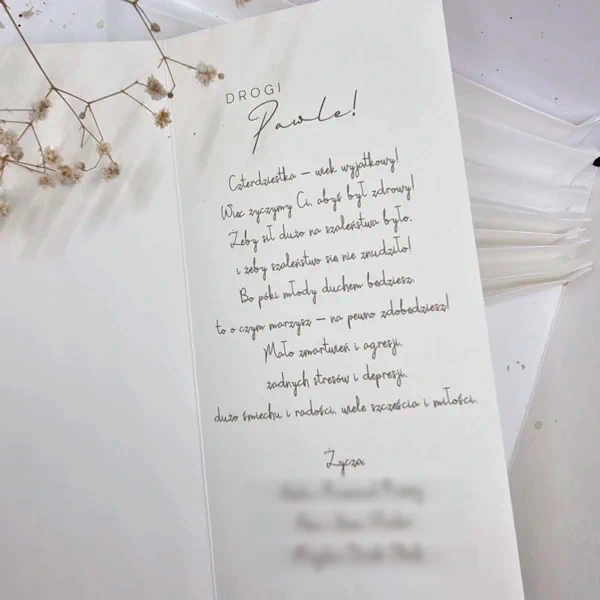 DROGI
Pawle!
Czterdziestka – wiek wyjątkowy!
Więc życzymy Ci, abyś był zdrowy!
Żeby sił dużo na szaleństwa było,
i żeby szaleństwo się nie znudziło!
Bo póki młody duchem będziesz,
to o czym marzysz – na pewno zdobędziesz!
Mało zmartwień i agresji,
żadnych stresów i depresji,
dużo śmiechu i radości, wiele szczęścia i miłości.
Życzą: